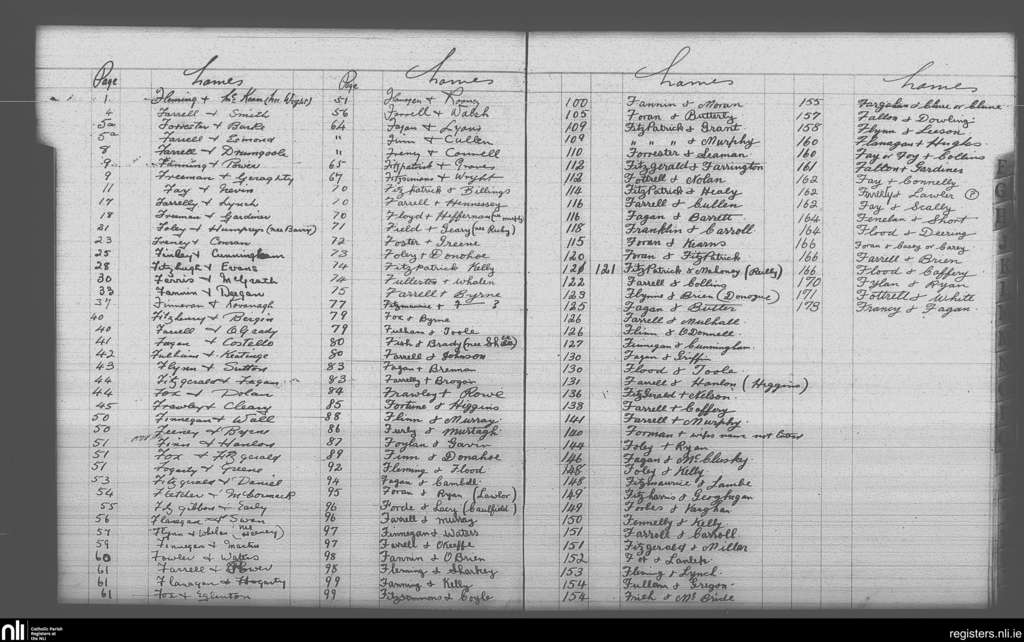 Page Names Page Names
1 Fleming & McKenn (nee Wright)
4 Farrell & Smith
5a Forrester & Burke
5a Farrell & Esmond
8 Farrell & Dromgoole
9 Fanning & Power
9 Freeman & Geraghty
11 Fay & Nevin
17 Farrelly & Lynch
18 Freeman & Gardiner
21 Foley & Humphreys (nee Barry)
23 Feeney & Conran
25 Finlay & Cunningham
28 Fitzhugh & Evans
30 Ferris & McGrath
33 Fannin & Deegan
37 Finneran & Kavanagh
40 Fitzhenry & Bergin
40 Farrell & O'Grady
41 Fagan & Costello
42 Fulham & Keatinge
43 Flynn & Sutton
44 Fitzgerald & Fagan
44 Fox & Dolan
45 Frawley & Cleary
50 Finnegan & Wall
50 Feeney & Byrne
51 Finn & Hanlon
51 Fox & Fitzgerald
51 Fogarty & Greene
53 Fitzgerald & Daniel
54 Fletcher & McCormack
55 Fitzgibbon & Early
56 Flanagan & Swan
57 Flynn & Whelan (nee Heeney)
59 Finnegan & Martin
60 Fowler & Watters
61 Farrell & Power
61 Flanagan & Hogarty
61 Fox & Eglinton
51 Flanagan & Rooney
56 Farrell & Walsh
64 Fagan & Lyons
" Finn & Cullen
" Feeney & Connell
65 Fitzpatrick &
67 Fitzsimons & Wright
70 Fitzpatrick & Billings
70 Farrell & Hennessey
70 Floyd & Heffernan
71 Field & Geary (nee Ruby)
72 Foster & Greene
73 Foley & Donohoe
74 Fitzpatrick Kelly
74 Fullerton & Whelan
75 Farrell & Byrne
77 Fitzmaurice & F
79 Fox & Byrne
79 Fulham & Toole
80 Fish & Brady (nee
80 Farrell & Johnson
83 Fagan & Brennan
83 Farrelly & Brogan
84 Frawley & Rowe
85 Fortune & Higgins
88 Flinn & Murray
86 Furly & Murtagh
87 Foylan & Gavin
89 Finn & Donahoe
92 Fleming & Flood
94 Fagan & Cambell
95 Foran & Ryan (Lawlor)
96 Forde & Lacy (Caulfield)
96 Farrell & Murray
97 Finnegan & Waters
97 Farrell & O'Keeffe
98 Fannin & O'Brien
98 Fleming & Sharkey
99 Fanning & Kelly
99 Fitzsimmons & Coyle
Names Names
100 Fannin & Moran
105 Foran & Butterly
109 FitzPatrick & Grant
109 " " " & Murphy
110 Forrester & Leaman
112 Fitzgerald & Farrington
112 Fottrell & Nolan
114 FitzPatrick & Healy
116 Farrell & Cullen
116 Fagan & Barrett
118 Franklin & Carroll
115 Foran & Kearns
120 Foran & FitzPatrick
121 121 FitzPatrick & Mahoney (Reilly)
122 Farrell & Collins
123 Flynn & Brien (Donoyne)
125 Fagan & Butler
126 Farrell & Mulhall
126 Flinn & O'Donnell
127 Finnegan & Cunningham
130 Fagan & Griffin
130 Flood & Toole
131 Farrell & Hanlon (Higgins)
136 FitzGerald & Nelson
138 Farrell & Caffery
141 Farrell & Murphy
140 Forman & wifes name not Entered
144 Foley & Ryan
146 Fagan & McClusky
148 Foley & Kelly
148 Fitzmaurice & Lambe
149 Fitzharris & Geoghagan
149 Forbes & Vaughan
150 Fennelly & Kelly
151 Farrell & Carroll
151 Fitzgerald & Millar
152 Fox & Lantck
153 Fleming & Lynch
154 Fullam & Gregon
154 Frish & McBride
155 Fargahan & Clune or Clune
157 Fallon & Dowling
158 Flynn & Leeson
160 Flanagan & Hughes
160 Fay or Foy & Collins
161 Fallon & Jardines
162 Fay & Connelly
162 Farrelly & Lawler (P)
162 Fay & Scally
164 Fenelan & Short
164 Flood & Deering
166 Foran & Casey or Carey
166 Farrell & Brien
166 Flood & Caffery
170 Fylan & Ryan
171 Fottrell & White
173 Francy & Fagan
nli Catholic Parish
Registers at
the NLI
registers.nli.ie